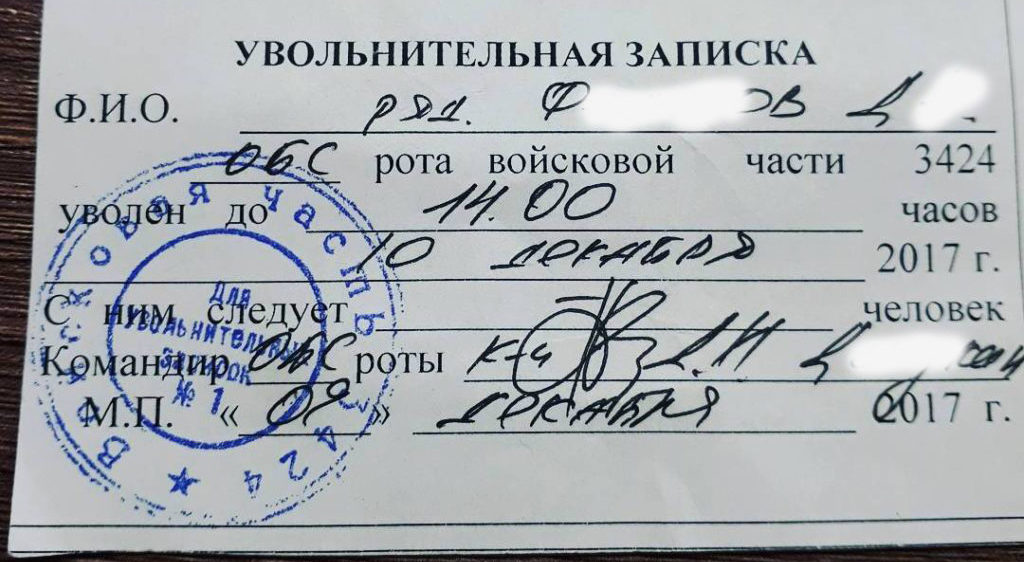 УВОЛЬНИТЕЛЬНАЯ ЗАПИСКА
Ф.И.О. ряд. Ф ОВ Д
ОБС рота войсковой части 3424
уволен до 14.00 часов
10 декабря 2017 г.
С ним следует человек
Командир ОБС роты к-н
М.П. « 09 » декабря 2017 г.
Войсковая часть 3424
Для
увольнительных
записок
№ 1